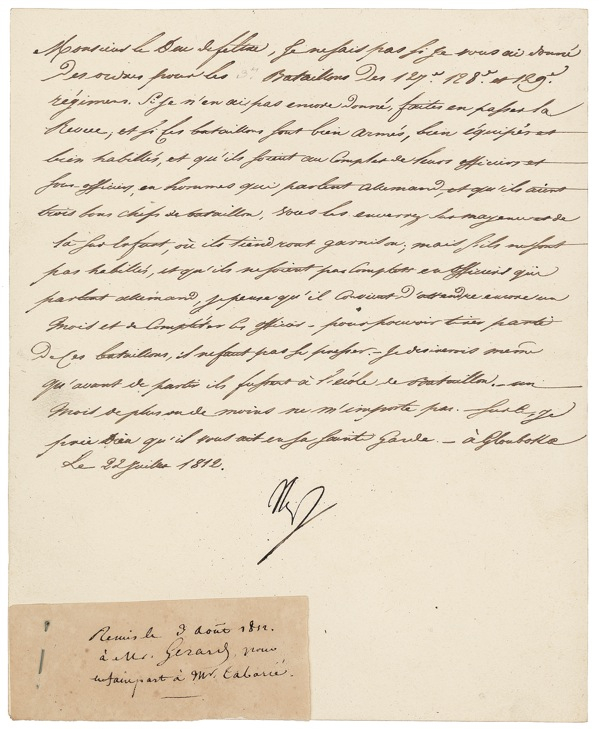 Monsieur le Duc de feltre, Je ne sais pas si Je vous ai donné
Des ordres pour les Bataillons Des 127.e 128.e et 129.e
régimens. Si Je n'en ai pas encore donné, faites en passer la
Revue, et si Ces bataillons sont bien armés, bien équipés et
bien habillés, et qu'ils soient au Complet de leurs officiers et
sous-officiers, en hommes qui parlent allemand, et qu'ils aient
trois bons chefs de bataillon, vous les enverrez sur mayence et de
là sur Erfurt, où ils tiendront garnison; mais s'ils ne sont
pas habillés, et qu'ils ne soient pas Complets en officiers qui
parlent allemand, je pense qu'il Convient D'attendre encore un
Mois et de Compléter les officiers - pour pouvoir tirer partie
De Ces bataillons, il ne faut pas se presser. - Je desirerois même
qu'avant de partir ils fussent à l'école de Bataillon. - un
Mois de plus ou de moins ne m'importe pas. - Sur ce, Je
prie Dieu qu'il vous ait en sa Sainte Garde. - à Gloubokoé
Le 22 Juillet 1812.
Np
Remis le 3 août 1812.
à Mr. Gerard. nous
en fair part à Mr. Tabarié.